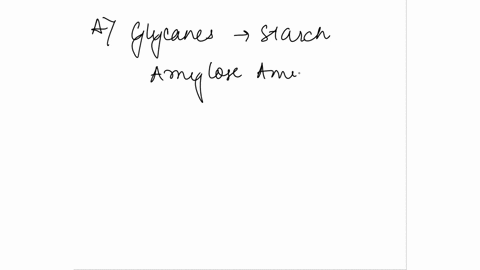 A) Glycanes → Starch
Amylose Amy